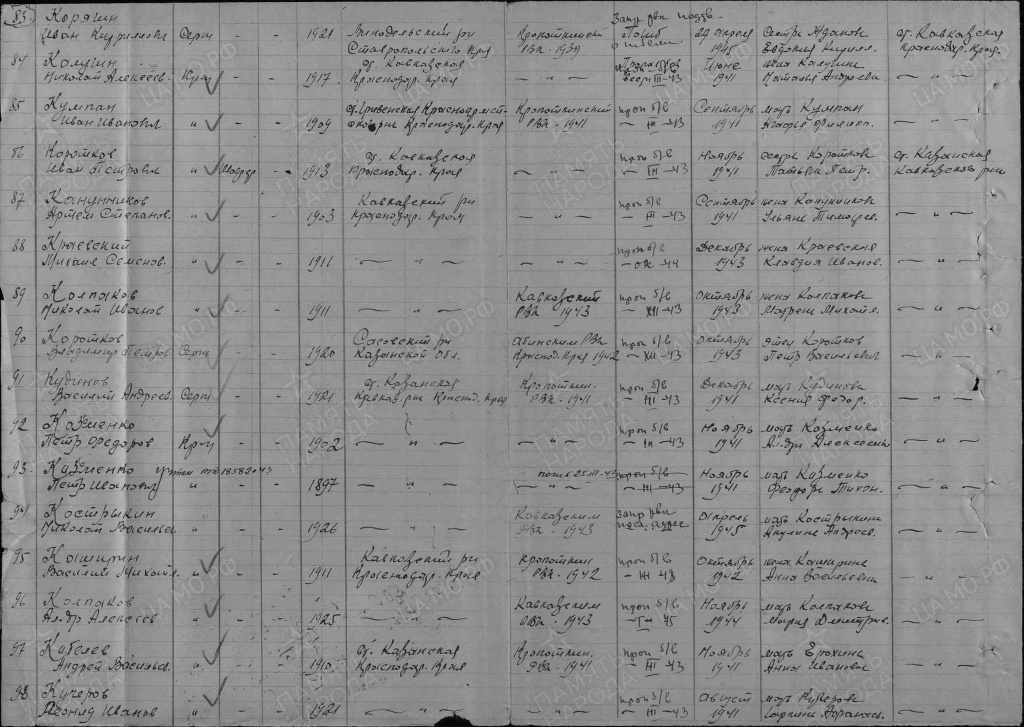 83 Корягин
Иван Кирилович Серж - - 1921 Виноделенский р-н Ставропольского Края Кропоткинский РВК - 1939 Запр рвк Погиб 27 апреля 1945 сестра Жданова Евдокия Кирилл. ст. Кавказская Краснодар. Края
84 Калугин
Николай Алексеев. Кр-ц - - 1917 ст. Кавказская Краснодар. Края - " - III-43 Июне 1941 жена Калугина Наталья Андреевна - " -
85 Кумпан
Иван Иванович " - - 1909 Краснодар. Края Кропоткинский РВК - 1941 проп б/в - III - 43 Сентябрь 1941 мать Кумпан Агафья Филипп. - " -
86 Коротков
Иван Петрович " - 1913 ст. Кавказская Краснодар. Края - " - проп б/в - III - 43 Ноябрь 1941 сестра Короткова Татьяна Петр. ст. Казанская Кавказского р-на
87 Канунников
Артем Степанов. " - - 1903 Кавказский р-н Краснодар. Края - " - проп б/в - III - 43 Сентябрь 1941 жена Канунникова Ульяна Тимофеев. - " -
88 Краевский
Михаил Семенов. " - - 1911 - " - - " - проп б/в - 44 Декабрь 1943 жена Краевская Клавдия Иванов. - " -
89 Колпаков
Николай Иванов " - - 1911 - " - Кавказский РВК 1943 проп б/в - XII - 43 октябрь 1943 жена Колпакова Матрена Михайл. - " -
90 Коротков
Владимир Петров Серж - - 1920 Сасовский р-н Казанской Обл. Абинским РВК Краснод. Края 1942 проп б/в - XII - 43 октябрь 1943 отец Коротков Петр Васильевич - " -
91 Кудинов
Василий Андреев. Серж - - 1921 ст. Казанская Кавказ. р-на Краснод. Края Кропоткин. РВК - 1941 проп б/в - III - 43 Декабрь 1941 мать Кудинова Ксения Федор. - " -
92 Козменко
Петр Федоров Кр-ц - - 1902 - " - - " - проп б/в - III - 43 Ноябрь 1941 мать Козменко Алексеевн - " -
93. Кузменко учтен 18582 43
Петр Иванович " - - 1897 - " - погиб 25.III.43 проп б/в - III - 43 Ноябрь 1941 мать Кузменко Феодора Тихон. - " -
94 Кострыкин
Николай Васильев " - - 1926 - " - Кавказским РВК 1943 запр рвк Апрель 1945 мать Кострыкина Акулина Андреев. - " -
95 Каширин
Василий Михайл. " - - 1911 Кавказский р-н Краснодар. Края Кропоткин РВК - 1942 проп б/в - III - 43 Октябрь 1942 жена Каширина Анна Васильевна - " -
96 Колпаков
Ал-др Алексеев " - - 1925 - " - Кавказским РВК - 1943 проп б/в - 45 Ноябрь 1944 мать Колпакова Мария Дмитрив. - " -
97 Кобелев
Андрей Васильев. " - - 1910 ст. Казанская Краснодар. Края Кропоткин. РВК - 1941 проп б/в - III - 43 Ноябрь 1941 мать Ерохина Анна Ивановна - " -
98 Кучеров
Леонид Иванов " - - 1921 - " - - " - проп б/в - III - 43 август 1941 мать Кучерова - " -
ПАМЯТЬ НАРОДА
ЦАМО.РФ